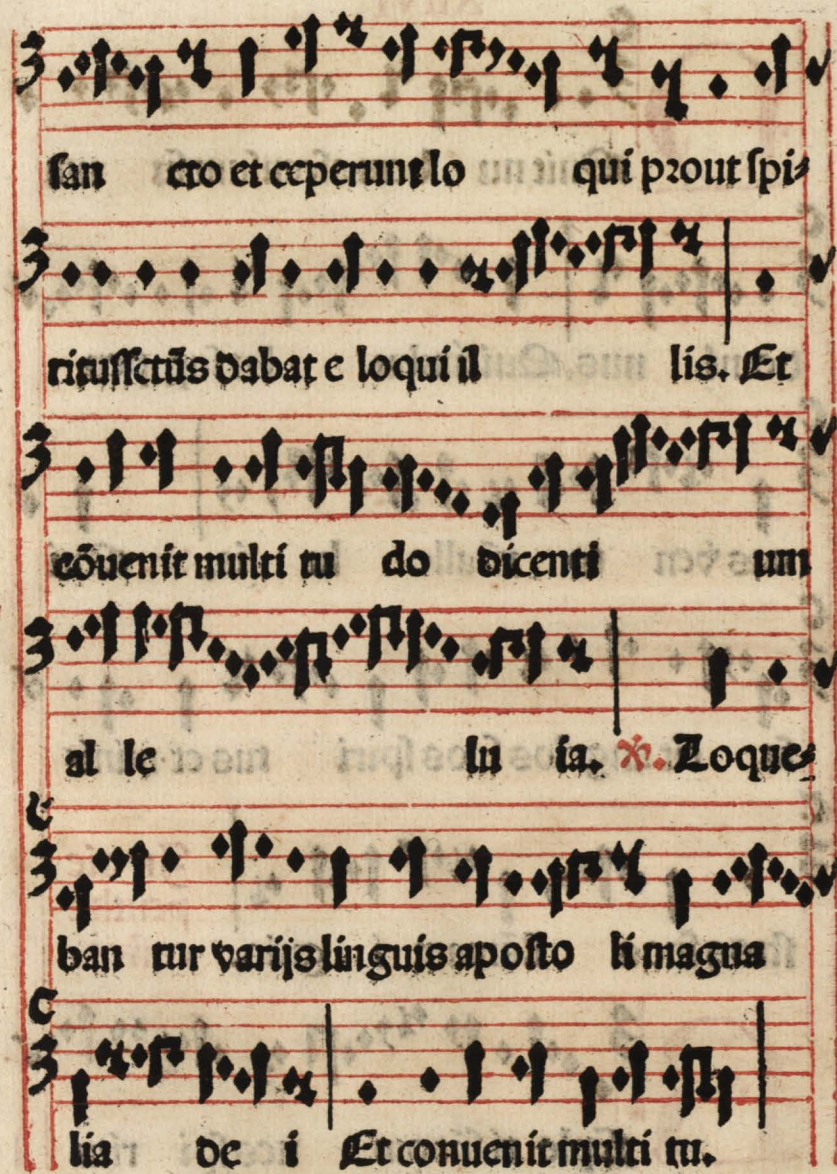 san cto et ceperunt lo qui prout spi⸗
ritussctūs dabat e loqui il lis. Et
cōuenit multi tu do dicenti um
al le lu ia. ℣. Loque⸗
ban tur varijs linguis aposto li magna
lia de i Et conuenit multi tu.